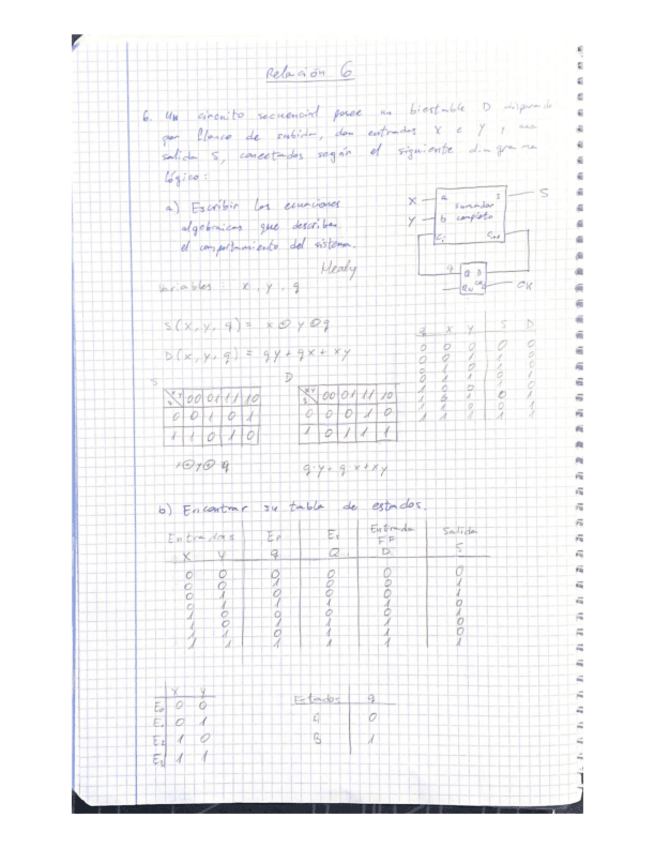 Relación 6
6. Un circuito secuencial posee un biestable D disparado
por flanco de subida, dos entradas X e Y, una
salida S, conectados según el siguiente diagrama
lógico:
a) Escribir las ecuaciones
algebraicas que describen
el comportamiento del sistema.
X a sumador S
Y b completo
Ci Cout
q Q D
CK
Mealy
Variables: x, y, q
S(x, y, q) = x ⊕ y ⊕ q
D(x, y, q) = qy + qx + xy
q x y S D
0 0 0 0 0
0 0 1 1 0
0 1 0 1 0
0 1 1 0 1
1 0 0 1 0
1 0 1 0 1
1 1 0 0 1
1 1 1 1 1
S
xy 00 01 11 10
0 0 1 0 1
1 1 0 1 0
x⊕y⊕q
D
xy 00 01 11 10
0 0 0 1 0
1 0 1 1 1
q·y + q·x + xy
b) Encontrar su tabla de estados.
Entradas Entrada Salida
FF
X Y q Q D S
0 0 0 0 0 0
0 0 1 0 0 1
0 1 0 0 0 1
0 1 1 1 1 0
1 0 0 0 0 1
1 0 1 1 1 0
1 1 0 1 1 0
1 1 1 1 1 1
X Y
E0 0 0
E1 0 1
E2 1 0
E3 1 1
Estados q
A 0
B 1